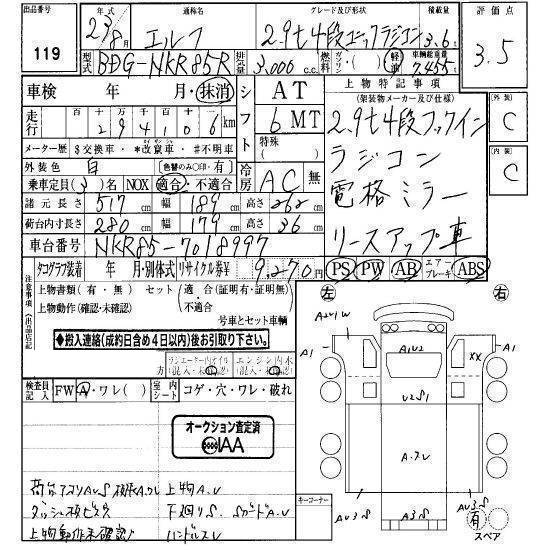 出品番号
119
年式
23/8月
通称名
エルフ
グレード及び形状
2.9t4段ユニックラジコン
積載量
3.6t
評価点
3.5
型式
BDG-NKR85R
排気量
3,000 c.c.
燃料 ガソリン・( )・軽油
車輌総重量
7,455
車検 年 月・抹消
シフト
AT
6 MT
特殊( )
上物特記事項
(架装物メーカー及び仕様)
2.9t4段フックイン
ラジコン
電格ミラー
リースアップ車
外装
C
内装
C
走行
十 万 千 百 十
294106 km
メーター歴 $交換車・*改竄車・#不明車
外装色 白 (色替のみ○印・有)
乗車定員(3)名 NOX 適合・不適合
冷房 AC 無
諸元長さ 517 cm 幅 189 cm 高さ 262 cm
荷台内寸長さ 280 cm 幅 179 cm 高さ 36 cm
車台番号 NKR85-7018997
PS PW AB エアーブレーキ ABS
タコグラフ装着 年 月・別体式 リサイクル券¥ 9,270円
注意事項(出品店記
上物書類(有・無) セット(適合(証明有・証明無)
・不適合
上物動作(確認・未確認) 号車とセット車輌
◆搬入連絡(成約日含め4日以内)後お引取り下さい。◆
検査員記入
FW A・ワレ( ) 室内シート コゲ・穴・ワレ・破れ
オークション査定済
IAA
上物A.U
ダッシュ板ビス穴 下廻りS
上物動作未確認 ハンドルスレ
キーコーナー
左
右
A2W
A1
A1U2
XX
A1
U2S1
A3S
有
スペア